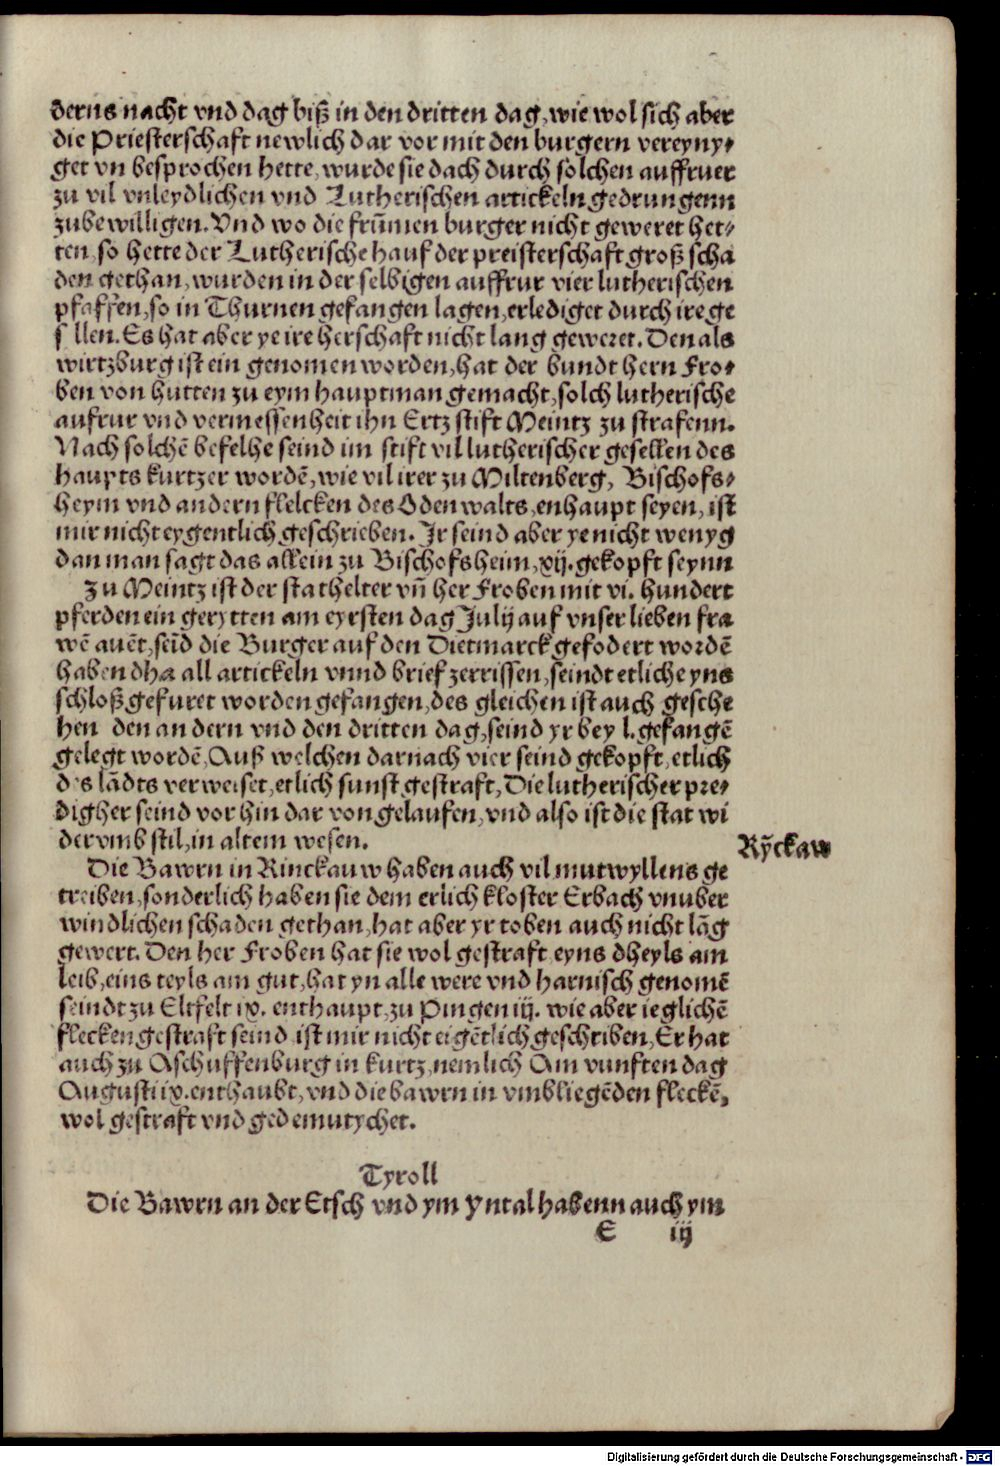 derns nacht vnd dag biß in den dritten dag, wie wol sich aber
die Priesterschaft newlich dar vor mit den burgern vereyny⸗
get vn besprochen hette, wurde sie dach durch solchen auffruer
zu vil vnleydlichen vnd Lutherischen artickeln gedrungenn
zubewilligen. Vnd wo die frūmen burger nicht geweret het⸗
ten, so hette der Lutherische hauf der preisterschaft groß scha
den gethan, wurden in der selbigen auffrur vier lutherischen
pfaffen, so in Thurnen gefangen lagen, erlediget durch ire ge
s llen. Es hat aber ye ire herschaft nicht lang geweret. Den als
wirtzburg ist ein genomen worden, hat der bundt hern Fro⸗
ben von hutten zu eym hauptman gemacht, solch lutherische
aufrur vnd vermessenheit ihn Ertz stift Meintz zu strafenn.
Nach solchē befelhe seind im stift vil lutherischer gesellen des
haupts kurtzer wordē, wie vil irer zu Miltenberg, Bischofs⸗
heym vnd andern flelcken des Odenwalts, enhaupt seyen, ist
mir nicht eygentlich geschrieben. Jr seind aber ye nicht wenyg
dan man sagt das allein zu Bischofsheim, xij. gekopft seynn
Zu Meintz ist der stathelter vn̄ her Froben mit vi. hundert
pferden ein gerytten am eyrsten dag Julij auf vnser lieben fra
wē auēt, seīd die Burger auf den Dietmarck gefodert wordē
haben dha all artickeln vnnd brief zerrissen, seindt etliche yns
schloß gefuret worden gefangen, des gleichen ist auch gesche
hen den andern vnd den dritten dag, seind yr bey l. gefangē
gelegt wordē, Auß welchen darnach vier seind gekopft, etlich
d s lādts verweiset, etlich sunst gestraft, Die lutherischer pre⸗
digher seind vor hin dar von gelaufen, vnd also ist die stat wi
dervmb stil, in altem wesen.
Rȳckaw
Die Bawrn in Rinckauw haben auch vil mutwyllens ge
treiben, sonderlich haben sie dem erlich kloster Erbach vnuber
windlichen schaden gethan, hat aber yr toben auch nicht lāg
gewert. Den her Froben hat sie wol gestraft eyns dheyls am
leib, eins teyls am gut, hat yn alle were vnd harnisch genomē
seindt zu Eltfelt ix. enthaupt, zu Pingen iij. wie aber ieglichē
flecken gestraft seind ist mir nicht eigētlich geschriben, Er hat
auch zu Aschuffenburg in kurtz, nemlich Am vunften dag
Augusti ix. enthaubt, vnd die bawrn in vmbliegēden fleckē,
wol gestraft vnd gedemutychet.
Tyroll
Die Bawrn an der Etsch vnd ym Yntal habenn auch ym
E iij
Digitalisierung gefördert durch die Deutsche Forschungsgemeinschaft - DFG